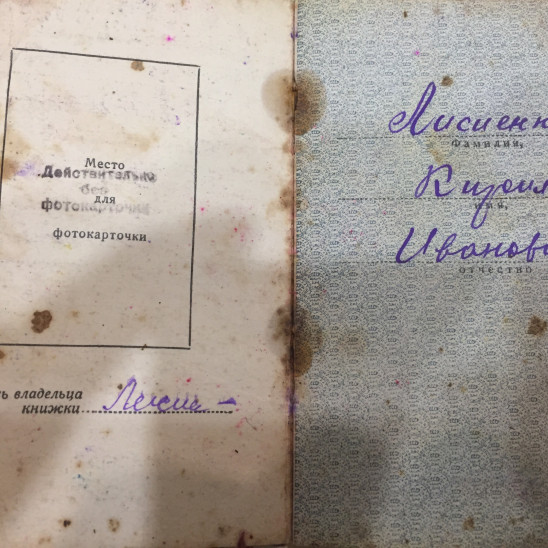 Место
Действительно
без
для
фотокарточки
фотокарточки
ь владельца
книжки
Лисиен
фамилия,
Кирил
имя,
Иванов
отчество